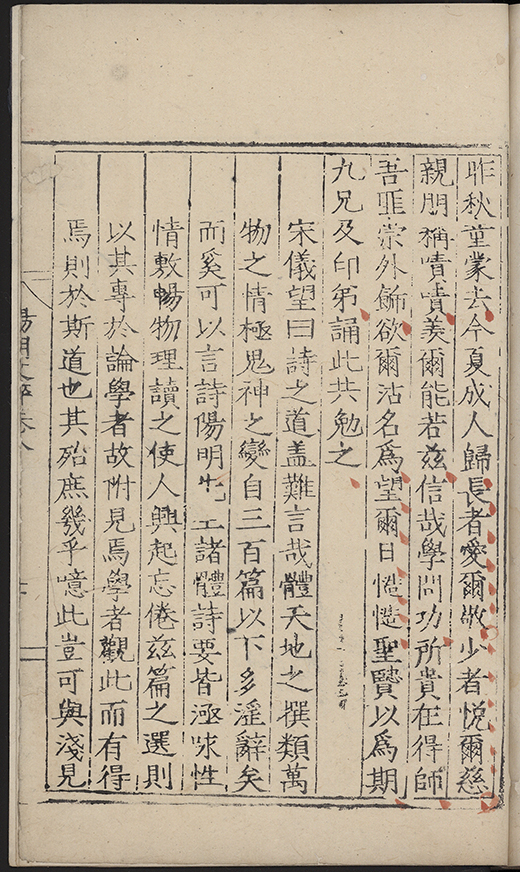 昨秋童蒙去今夏成人歸長者愛爾敬少者悅爾慈
親朋稱嘖嘖羨爾能若茲信哉學問功所貴在得師
吾匪崇外飾欲爾沽名爲望爾日慥慥聖賢以爲期
九兄及印弟誦此共勉之
宋儀望曰詩之道蓋難言哉體天地之撰類萬
物之情極鬼神之變自三百篇以下多淫辭矣
而奚可以言詩陽明先生諸體詩要皆極求性
情敷暢物理讀之使人興起忘倦茲篇之選則
以其專於論學者故附見焉學者觀此而有得
焉則於斯道也其殆庶幾乎噫此豈可與淺見
陽明文粹卷八